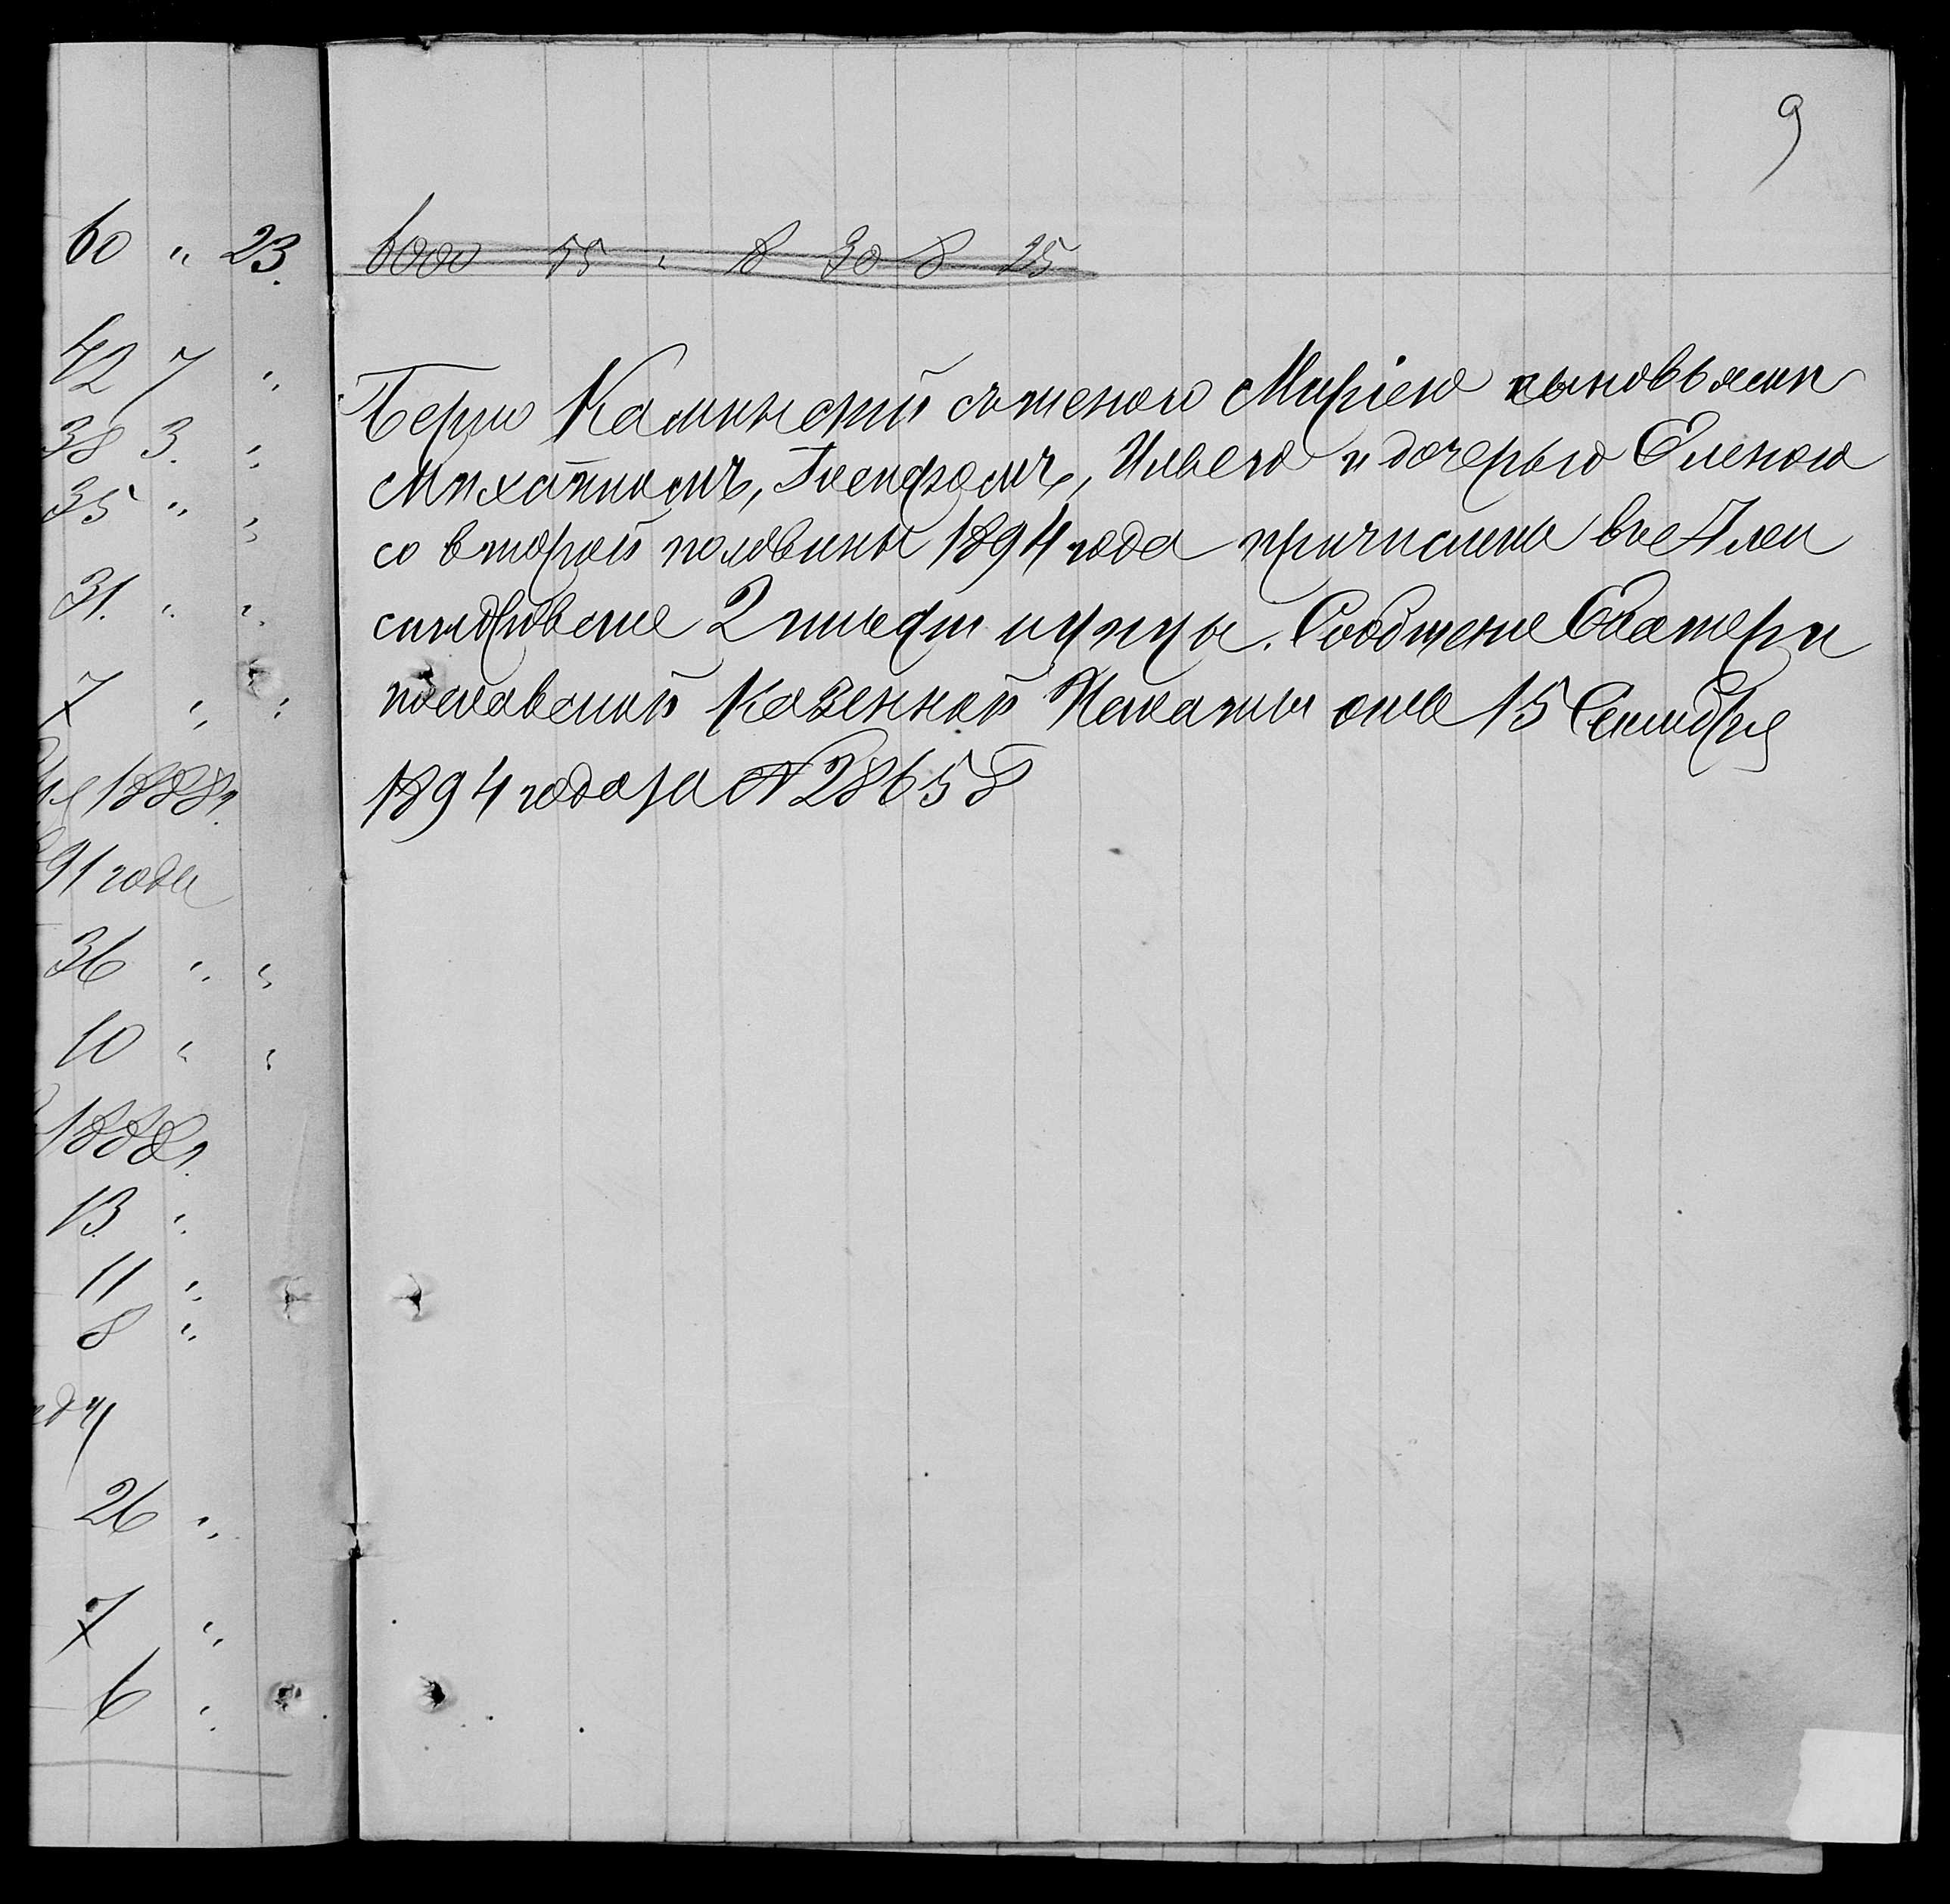 9
60 " 23.
6000 55 " 8 30 8 25
42 7 "
38 3. "
35 " "
31. " "
7 " "
1888 г.
91 года
36 " "
10 " "
1888 г.
13 "
11 "
8 "
26 "
7 "
6 "
Берко Каминскій съ женою Маріею сыновьями
Михаиломъ, Іосифомъ, Ильею и дочерью Еленою
со второй половины 1894 года причислены въ Алек
сандровские 2 гильдіи купцы. Сообщение Екатери
нославской Казенной Палаты отъ 15 Сентября
1894 года за № 28658